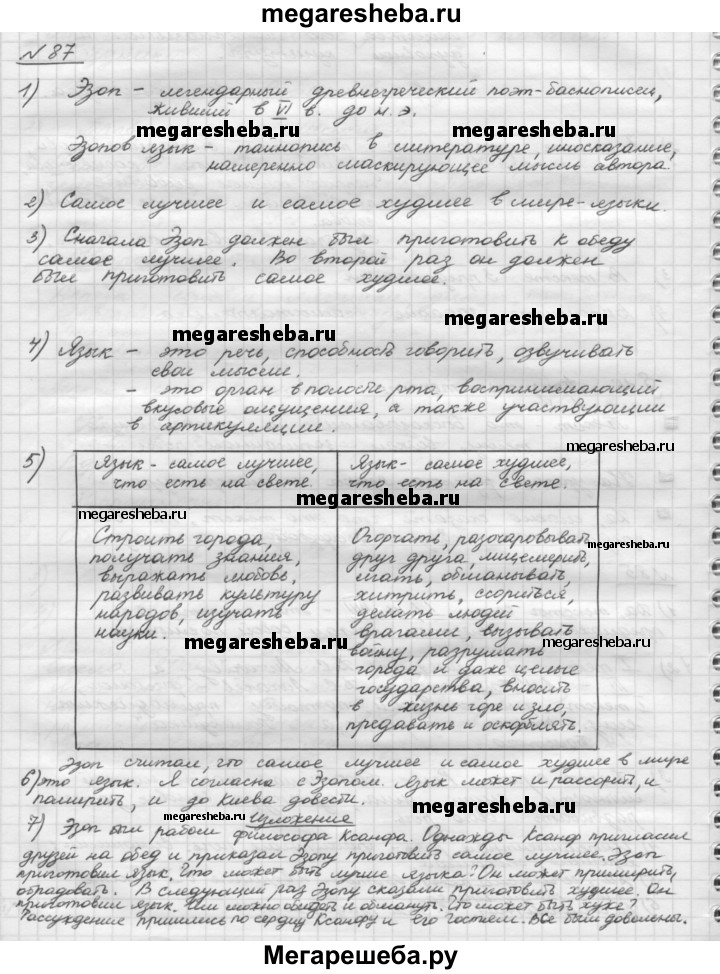 megaresheba.ru
№87
1) Эзоп - легендарный древнегреческий поэт-баснописец,
живший в VI в. до н.э.
megaresheba.ru megaresheba.ru
Эзопов язык - тайнопись в литературе, иносказание,
намеренно маскирующее мысль автора.
2) Самое лучшее и самое худшее в мире - языки.
3) Сначала Эзоп должен был приготовить к обеду
самое лучшее. Во второй раз он должен
был приготовить самое худшее.
megaresheba.ru
megaresheba.ru
4) Язык - это речь, способность говорить, озвучивать
свои мысли.
- это орган в полости рта, воспринимающий
вкусовые ощущения, а также участвующий
в артикуляции.
megaresheba.ru
5) Язык - самое лучшее,
что есть на свете.
Язык - самое худшее,
что есть на свете.
megaresheba.ru
megaresheba.ru
Строить города,
получать знания,
выражать любовь,
развивать культуру
народов, изучать
науки.
Огорчать, разочаровывать
друг друга, лицемерить,
лгать, обманывать,
хитрить, ссориться,
делать людей
врагами, вызывать
войну, разрушать
города и даже целые
государства, вносить
в жизнь горе и зло,
предавать и оскорблять.
megaresheba.ru
megaresheba.ru
megaresheba.ru
Эзоп считал, что самое лучшее и самое худшее в мире
6) это язык. Я согласна с Эзопом. Язык может и рассорить, и
помирить, и до Киева довести.
megaresheba.ru
megaresheba.ru Изложение
7) Эзоп был рабом философа Ксанфа. Однажды Ксанф пригласил
друзей на обед и приказал Эзопу приготовить самое лучшее. Эзоп
приготовил язык. Что может быть лучше языка? Он может примирить,
обрадовать. В следующий раз Эзопу сказали приготовить худшее. Он
приготовил язык. Им можно обидеть и обмануть. Что может быть хуже?
Рассуждение пришлись по сердцу Ксанфу и его гостям. Все были довольны.
Мегарешеба.ру